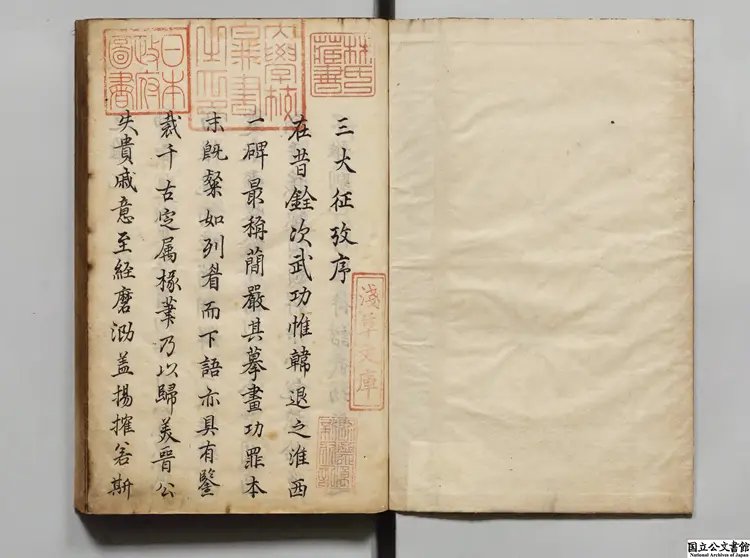 三大征攷序
在昔銓次武功惟韓退之淮西
一碑最稱簡嚴其摹畫功罪本
末既粲如列眉而下語亦具有鑒
裁千古定属椽筆乃以歸美晉公
失貴戚意至經磨泐盖揚搉若斯
林氏藏書
大學校圖書之印
日本政府圖書
淺草文庫
国立公文書館
National Archives of Japan